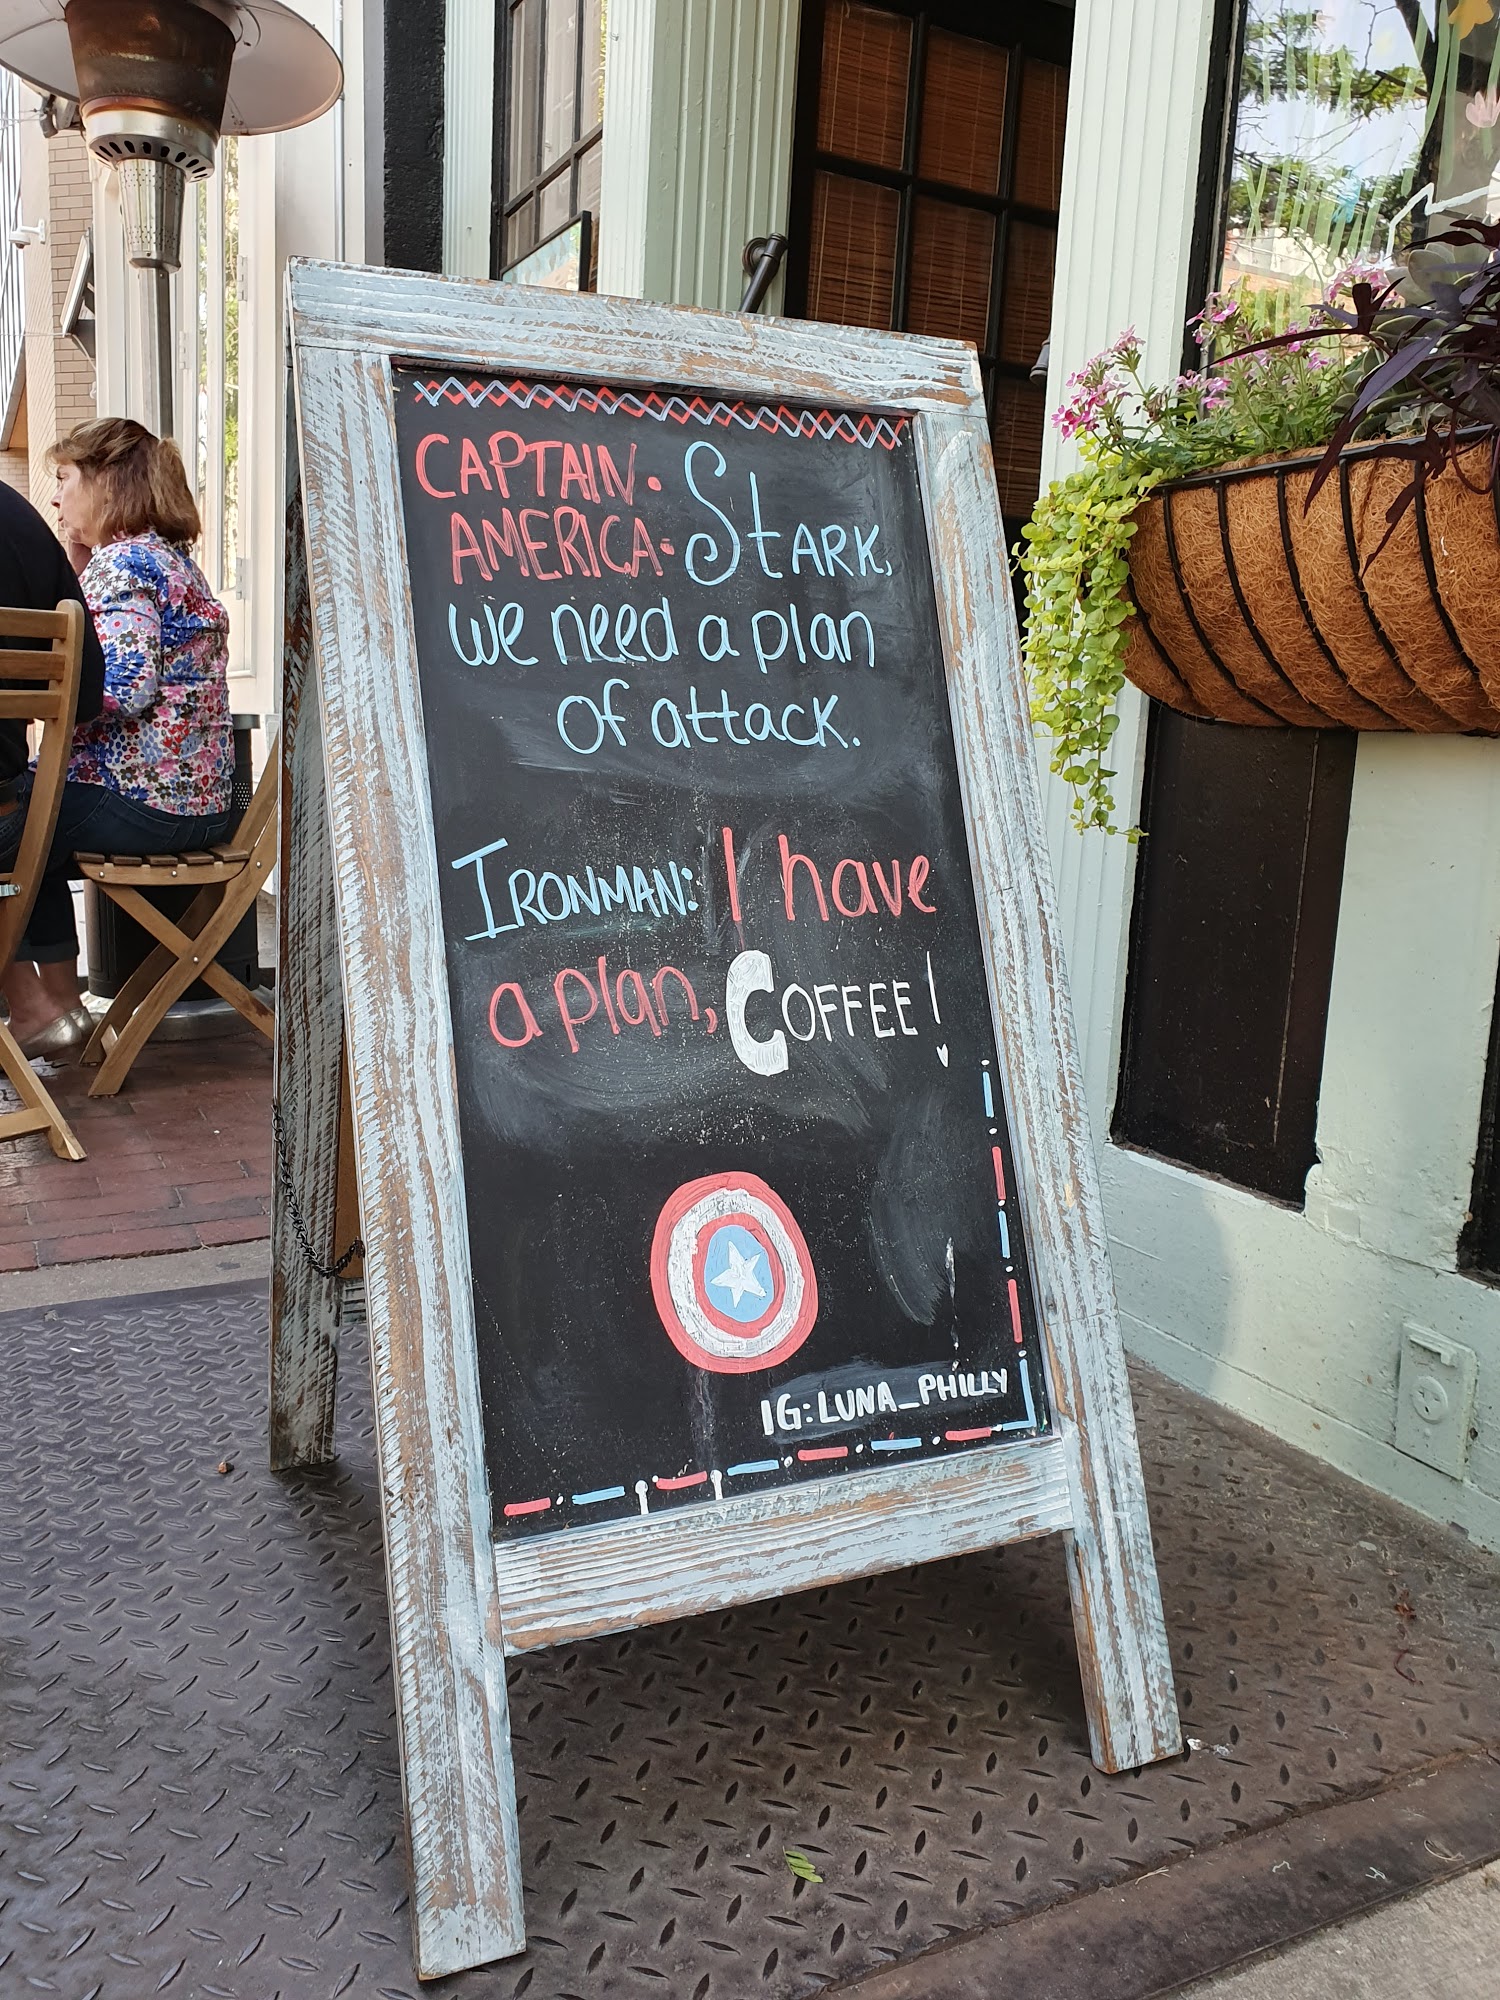 CAPTAIN. STARK,
AMERICA:
we need a plan
of attack.
IRONMAN: I have
a plan, COFFEE!
IG: LUNA_PHILLY